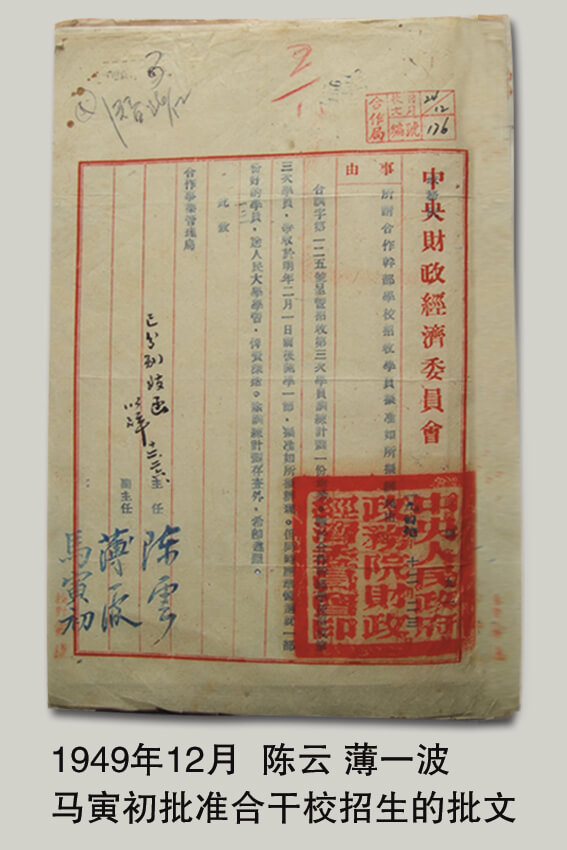 24/12
136
合作局
中央財政經濟委員會
事由
所請合作幹部學校招收學員擬准如所擬
合訓字第一二五號呈暨招收第三次學員訓練計劃一份
三次學員，希改於明年二月一日前後開學一節，擬准如所擬辦理。但同時應準備選派一部
份好的學員，送人民大學學習，俾資深造。除訓練計劃存查外，希即遵照。
此致
合作事業管理局
已分別致函
主任
副主任
陈雲
薄一波
馬寅初
十二 二三
中央人民政府
政務院財政
經濟委員會印
1949年12月 陈云 薄一波
马寅初批准合干校招生的批文